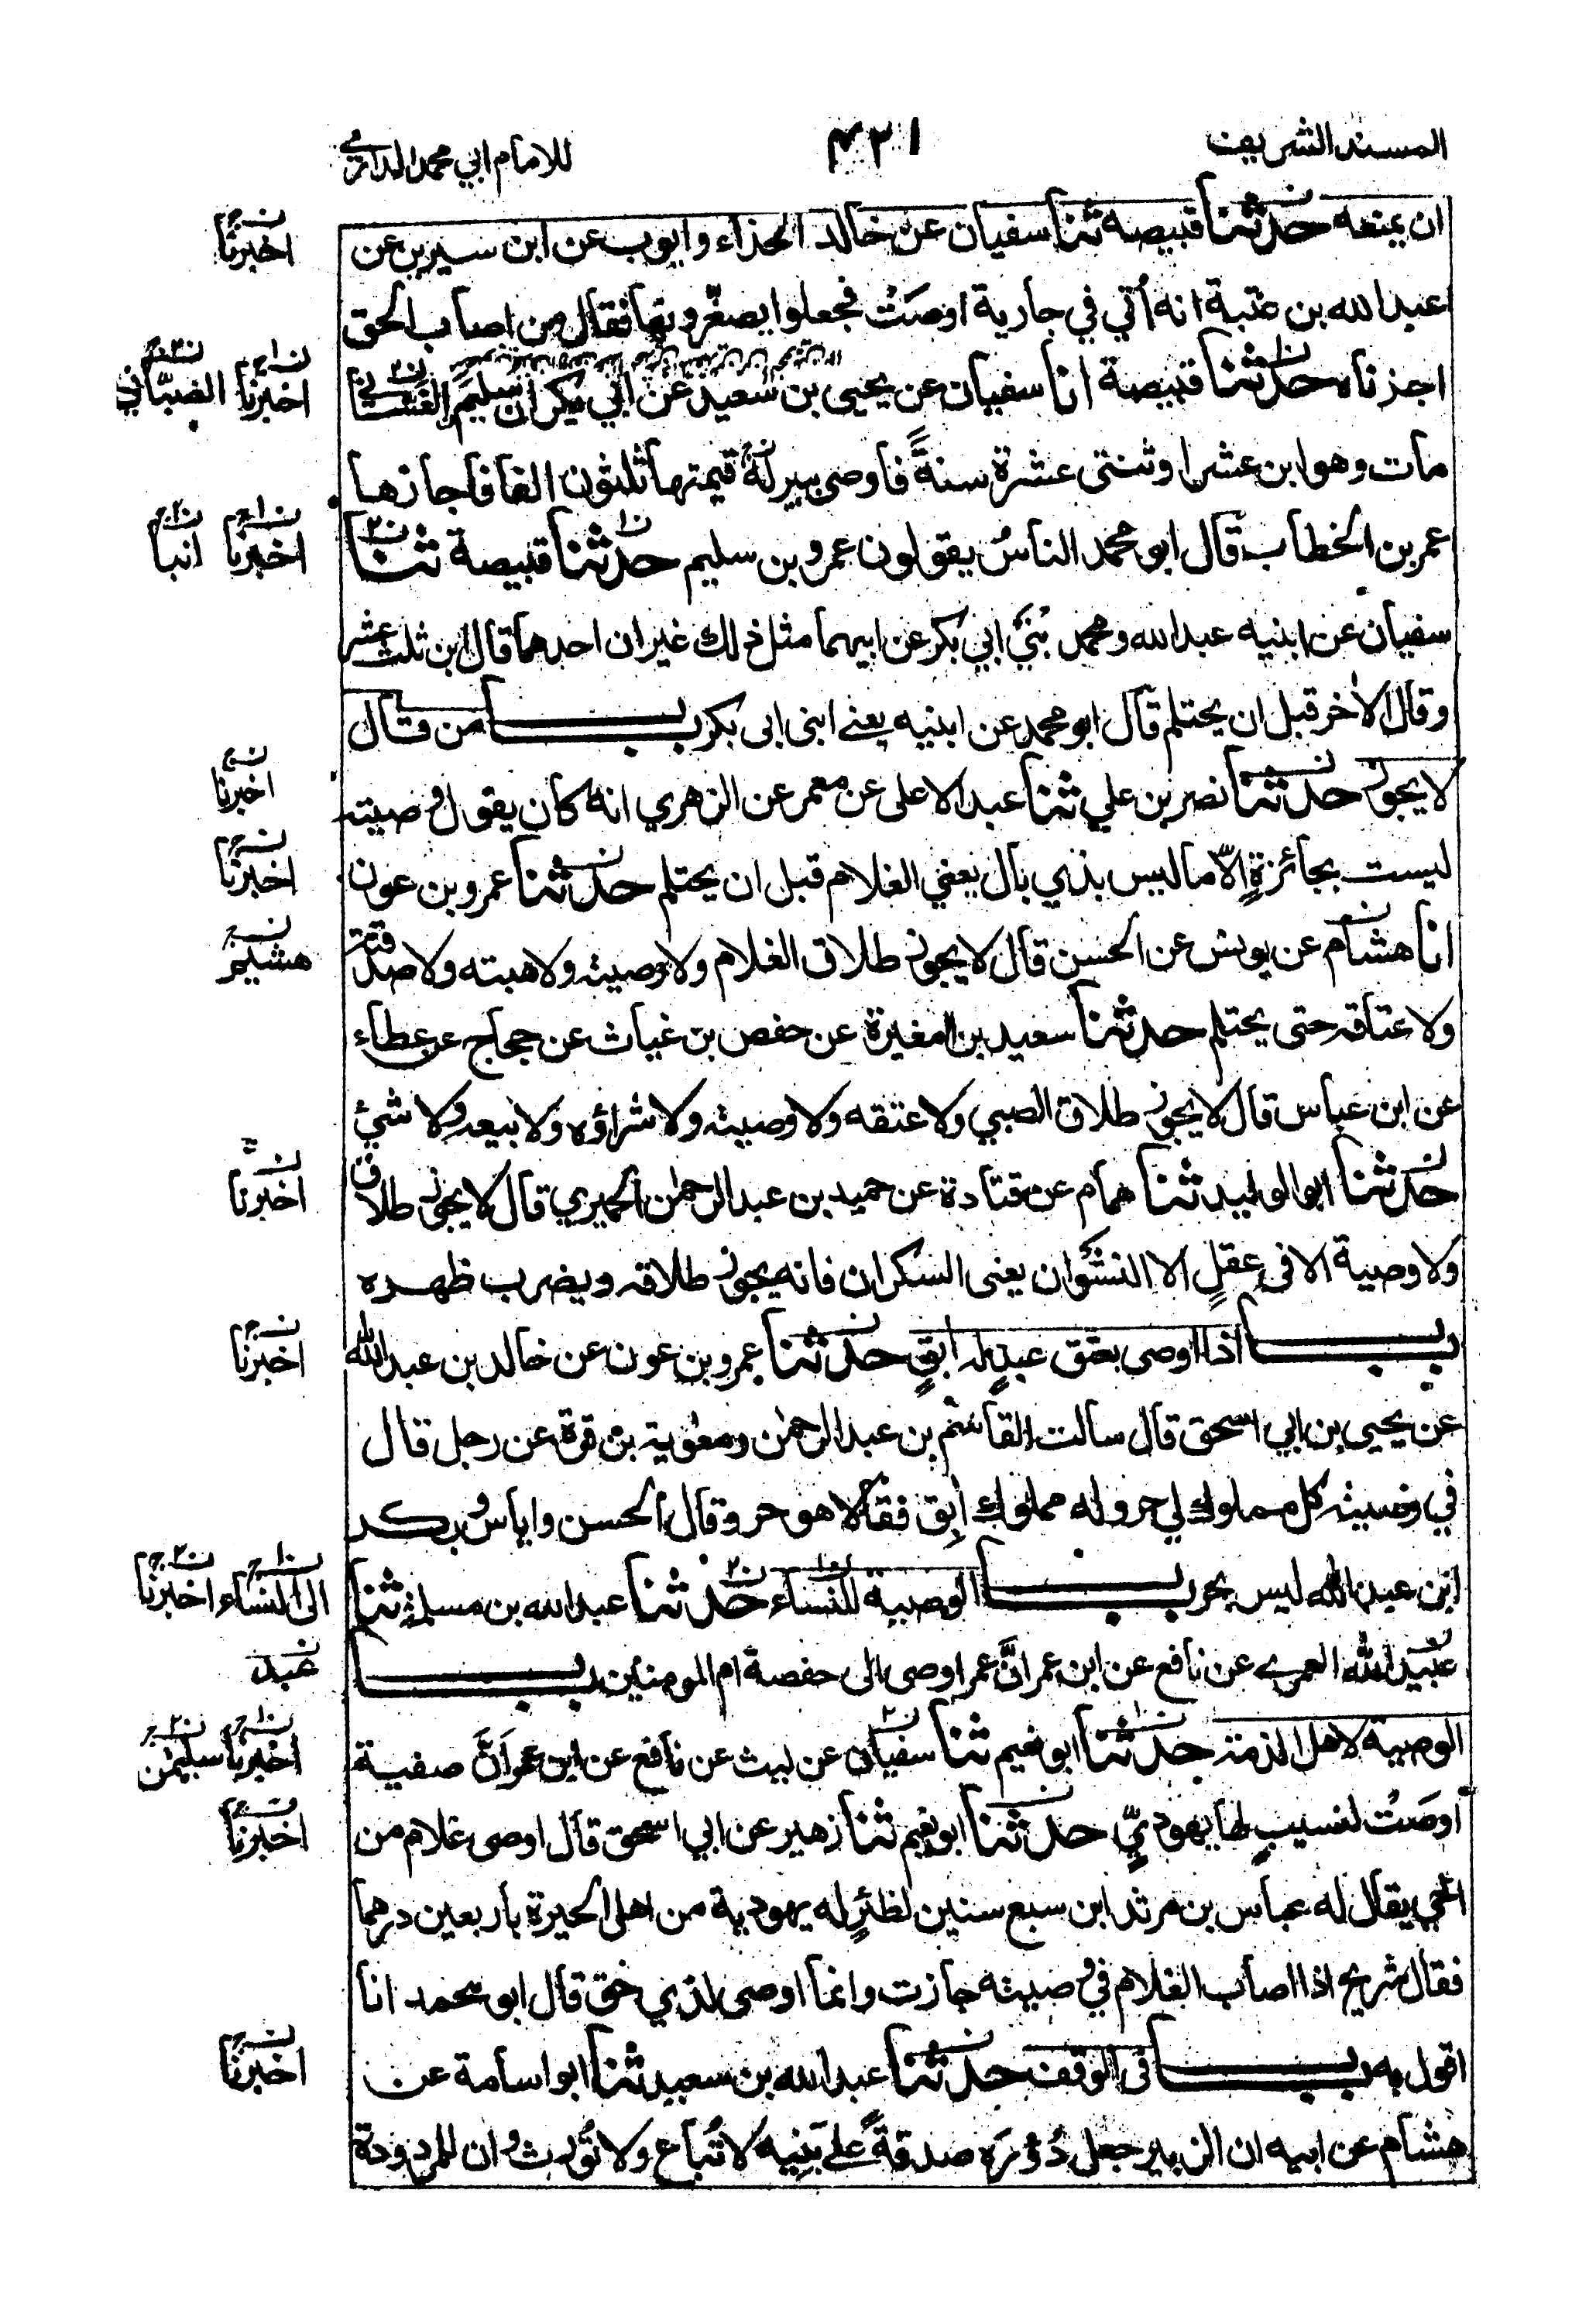 المسند الشريف
٤٢١
للامام ابي محمد الدارمي
ان يمنعه حدثنا قبيصة ثنا سفيان عن خالد الحذاء وايوب عن ابن سيرين عن
عبد الله بن عتبة انه أتي في جارية اوصَتْ فجعلوا يصغّرونها فقال من اصاب الحق
اجزناه حدثنا قبيصة انا سفيان عن يحيى بن سعيد عن ابي بكر ان سليم الغساني
مات وهو ابن عشر او ثنتى عشرة سنةً فاوصى ببير لهٗ قيمتها ثلثون الفا فاجازها
عمر بن الخطاب قال ابو محمد الناسُ يقولون عمرو بن سليم حدثنا قبيصة ثنا
سفيان عن ابنيه عبد الله ومحمد بْنَيْ ابي بكر عن ابيهما مثل ذلك غير ان احدهما قال ابن ثلث عشر
وقال الاٰخر قبل ان يحتلم قال ابو محمد عن ابنيه يعني ابنى ابى بكر باب من قال
لا يجوز حدثنا نصر بن علي ثنا عبد الاعلى عن معمر عن الزهري انه كان يقول وصيته
ليست بجائزةٍ الّا ما ليس بذي بال يعني الغلام قبل ان يحتلم حدثنا عمرو بن عون
انا هشام عن يونس عن الحسن قال لا يجوز طلاق الغلام ولا وصيته ولا هبته ولا صدقته
ولا عتاقه حتى يحتلم حدثنا سعيد بن المغيرة عن حفص بن غياث عن حجاج عن عطاء
عن ابن عباس قال لا يجوز طلاق الصبي ولا عتقه ولا وصيته ولا شراؤه ولا بيعه ولا شيئ
حدثنا ابو الوليد ثنا همام عن قتادة عن حميد بن عبد الرحمٰن الحميري قال لا يجوز طلاق
ولا وصية الا فى عقلٍ الا النشوان يعنى السكران فانه يجوز طلاقه ويضرب ظهره
باب اذا اوصى بعتق عبدٍ له اٰبقٍ حدثنا عمرو بن عون عن خالد بن عبد الله
عن يحيى بن ابي اسحق قال سالت القاسم بن عبد الرحمٰن ومعٰوية بن قرة عن رجل قال
في وصيته كل مملوك لي حر وله مملوك اٰبق فقالا هو حر وقال الحسن واياس وبكر
ابن عبد الله ليس بحر باب الوصية للنساء حدثنا عبد الله بن مسلمة ثنا
عبيد الله العمري عن نافع عن ابن عمر انَّ عمر اوصى الى حفصة ام المومنين باب
الوصية لاهل الذمة حدثنا ابو نعيم ثنا سفيان عن ليث عن نافع عن ابن عمر انَّ صفية
اوصَتْ لنسيبٍ لها يهوديٍّ حدثنا ابو نعيم ثنا زهير عن ابي اسحق قال اوصى غلام من
الحي يقال له عباس بن مرثد ابن سبع سنين لظئرٍ له يهودية من اهل الحيرة باربعين درهما
فقال شريح اذا اصاب الغلام في وصيته جازت وانما اوصى لذي حق قال ابو محمد انا
اقول به باب فى الوقف حدثنا عبد الله بن سعيد ثنا ابو اسامة عن
هشام عن ابيه ان الزبير جعل دُوْرَه صدقةً على بَنِيه لا تُباع ولا تُورث وان للمردودة
اخبرنا
اخبرنا الضبّاني
اخبرنا انبا
اخبرنا
اخبرنا
هشيم
اخبرنا
اخبرنا
الى النساء اخبرنا
عبد
اخبرنا سليمٰن
اخبرنا
اخبرنا